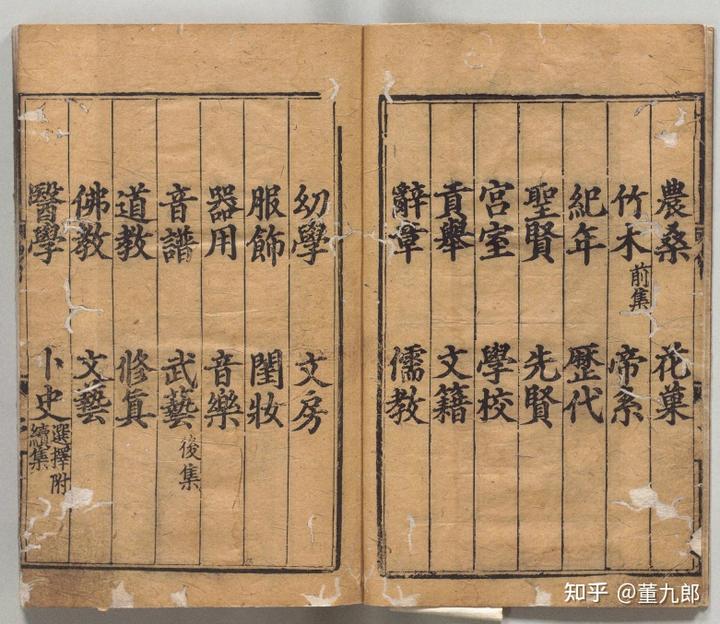 農桑 花菓
竹木前集 帝系
紀年 歷代
聖賢 先賢
宮室 學校
貢舉 文籍
辭章 儒教
幼學 文房
服飾 閨妝
器用 音樂
音譜 武藝後集
道教 修眞
佛教 文藝
醫學 卜史選擇附續集
知乎 @董九郎